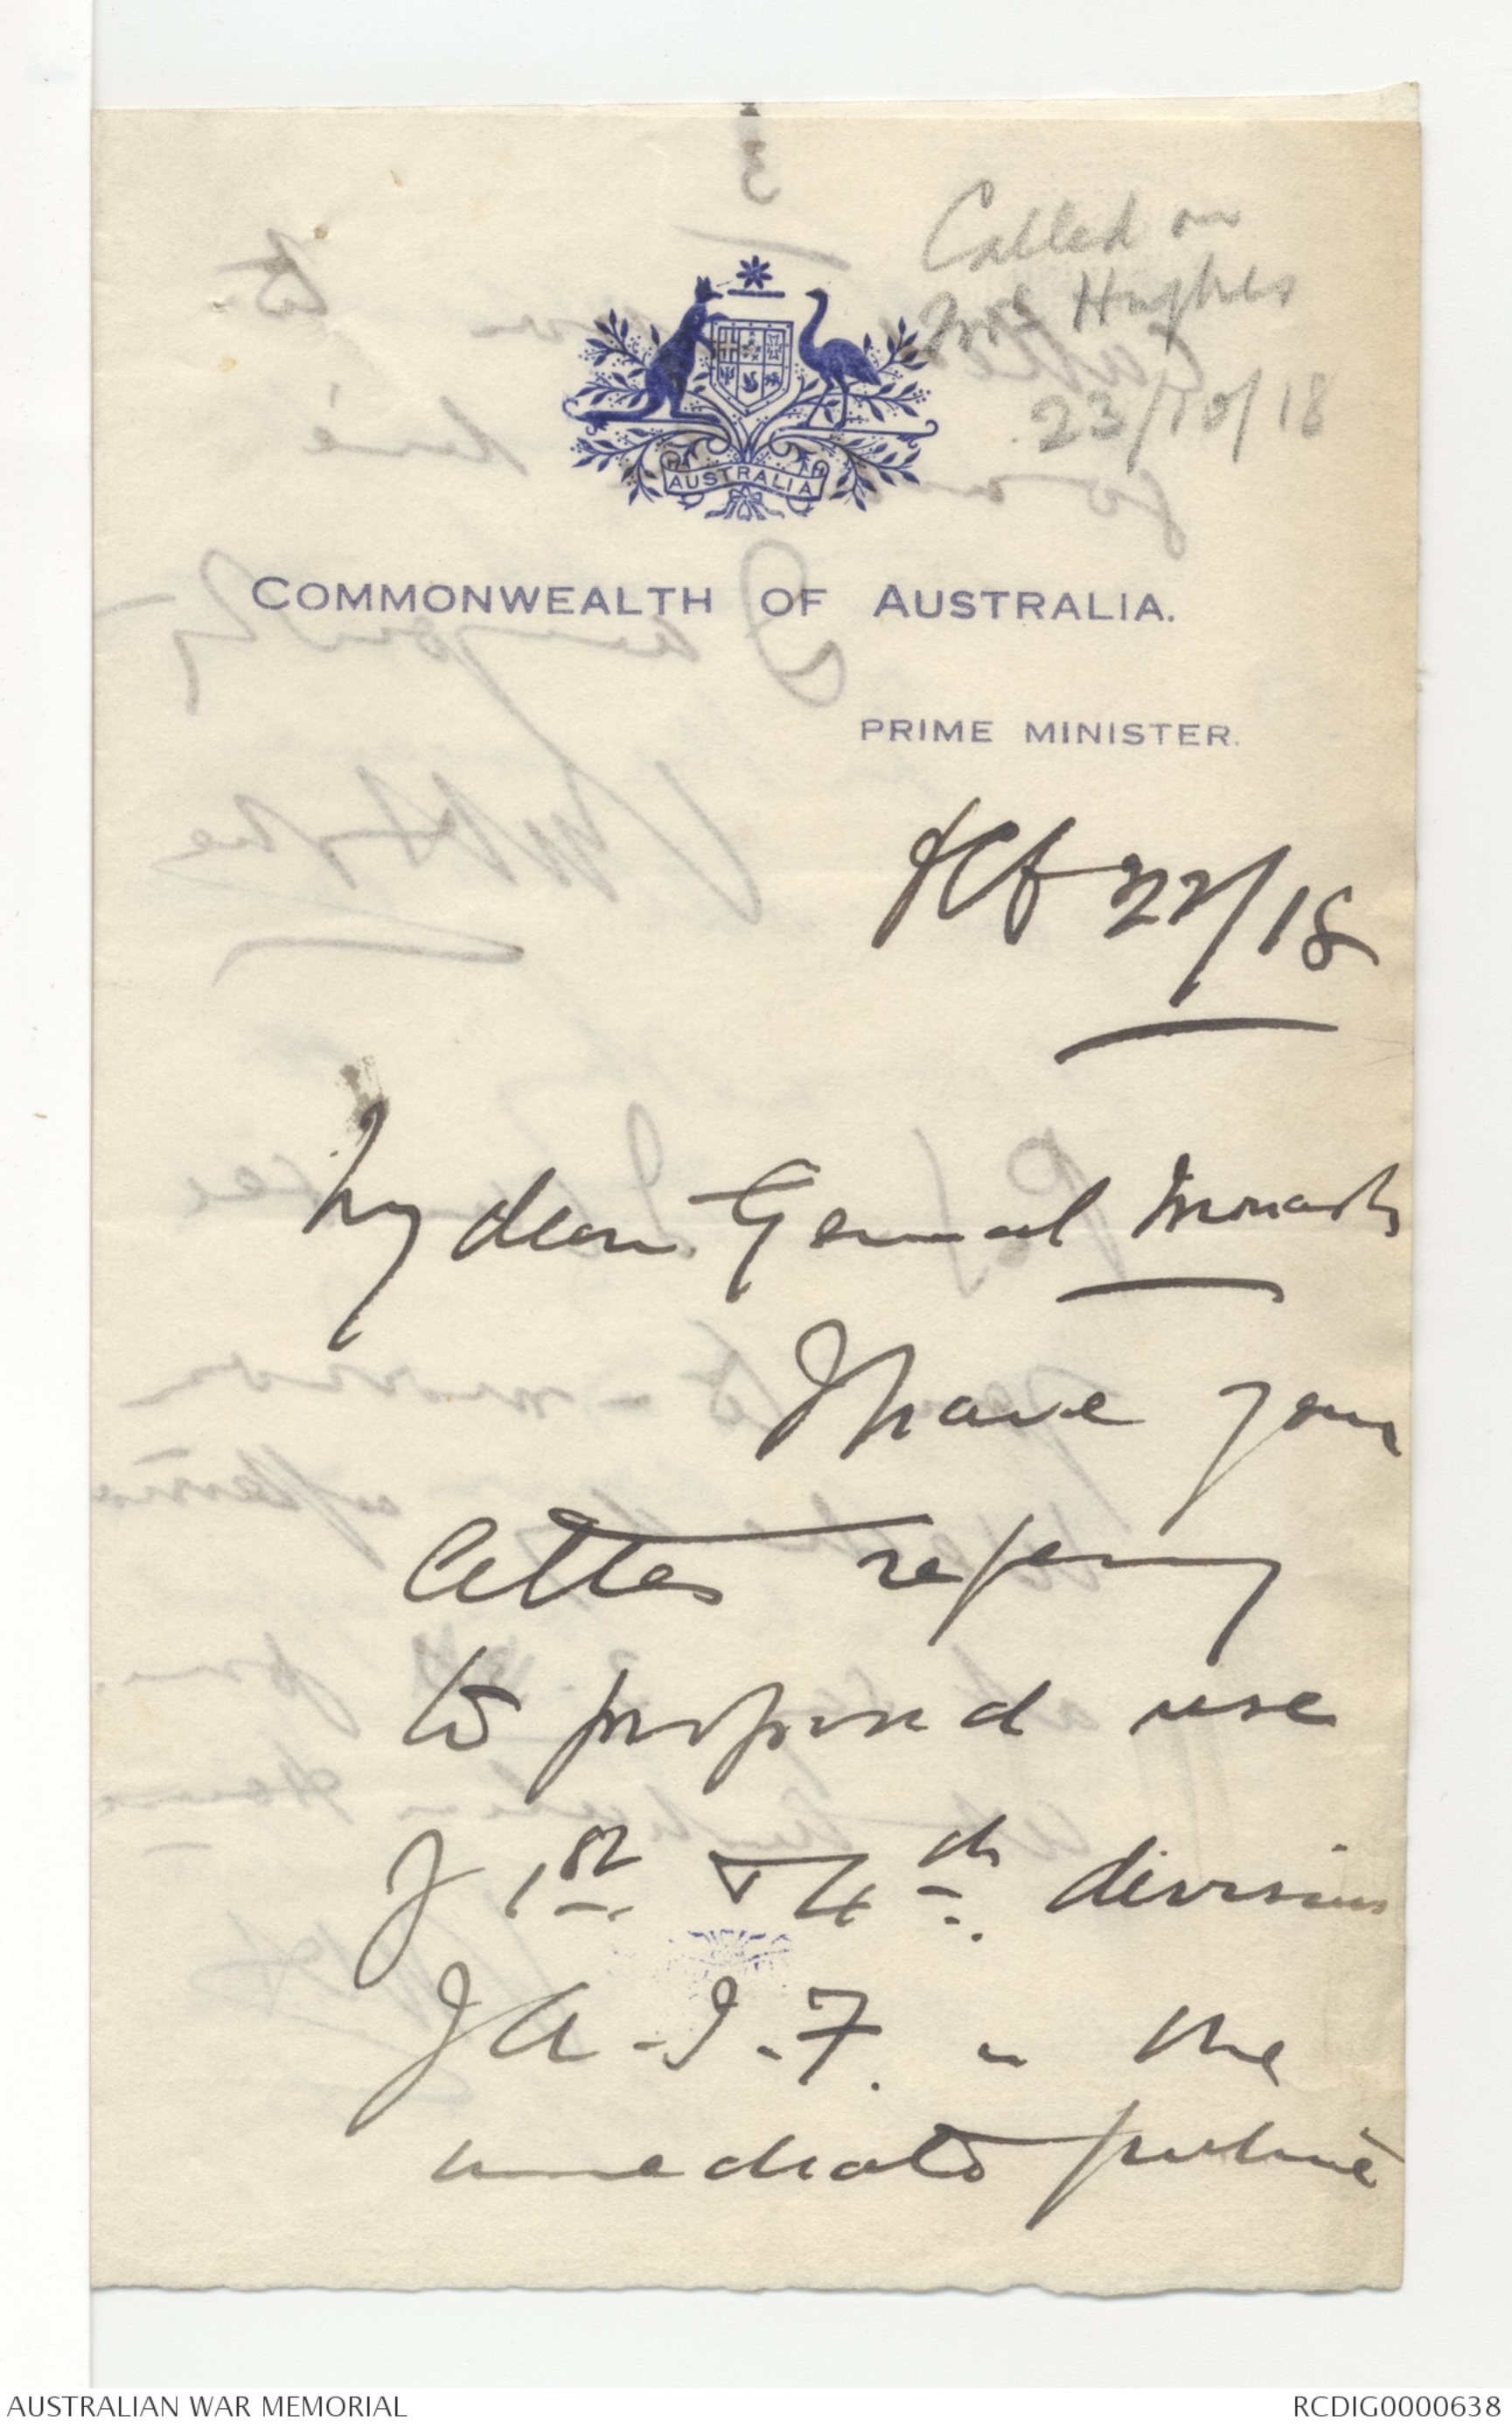 Called on
Mrs Hughes
23/10/18
AUSTRALIA
COMMONWEALTH OF AUSTRALIA.
PRIME MINISTER.
Oct 22/18
My dear General Monash
I have your
letter referring
to proposed use
of 1st & 4th divisions
of A.I.F. in the
immediate future
AUSTRALIAN WAR MEMORIAL
RCDIG0000638